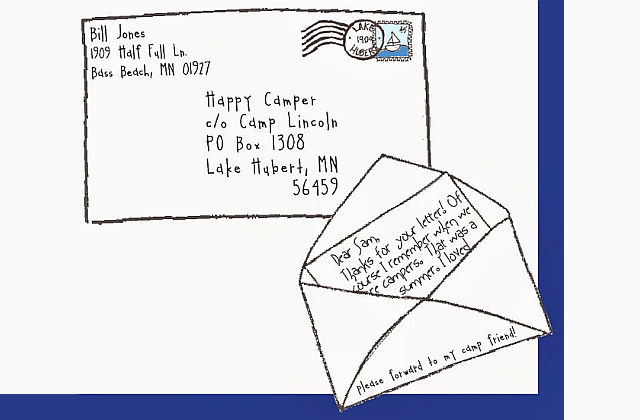 Bill Jones
1909 Half Full Ln.
Bass Beach, MN 01927
LAKE
1909
HUBERT
45
Happy Camper
c/o Camp Lincoln
PO Box 1308
Lake Hubert, MN
56459
Dear Sam,
Thanks for your letter! Of
course I remember when we
re campers. That was a
summer. I loved
please forward to my camp friend!